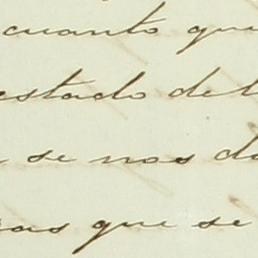 cuanto que
estado del
se nos da
as que se